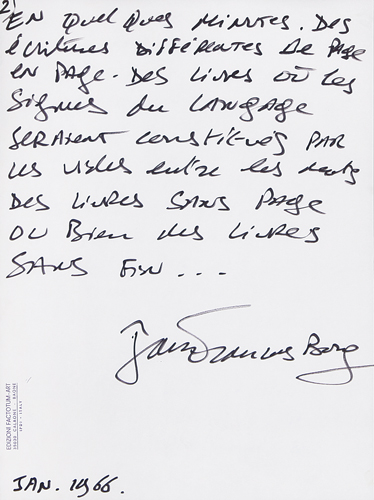 2)
EN quelques minutes. Des
écritures différentes de page
en page. Des livres où les
signes du langage
seraient constitués par
les vides entre les mots
Des livres sans page
ou bien des livres
sans fin ...
Jean François Bory
EDIZIONI FACTOTUM-ART
JAN. 1966.